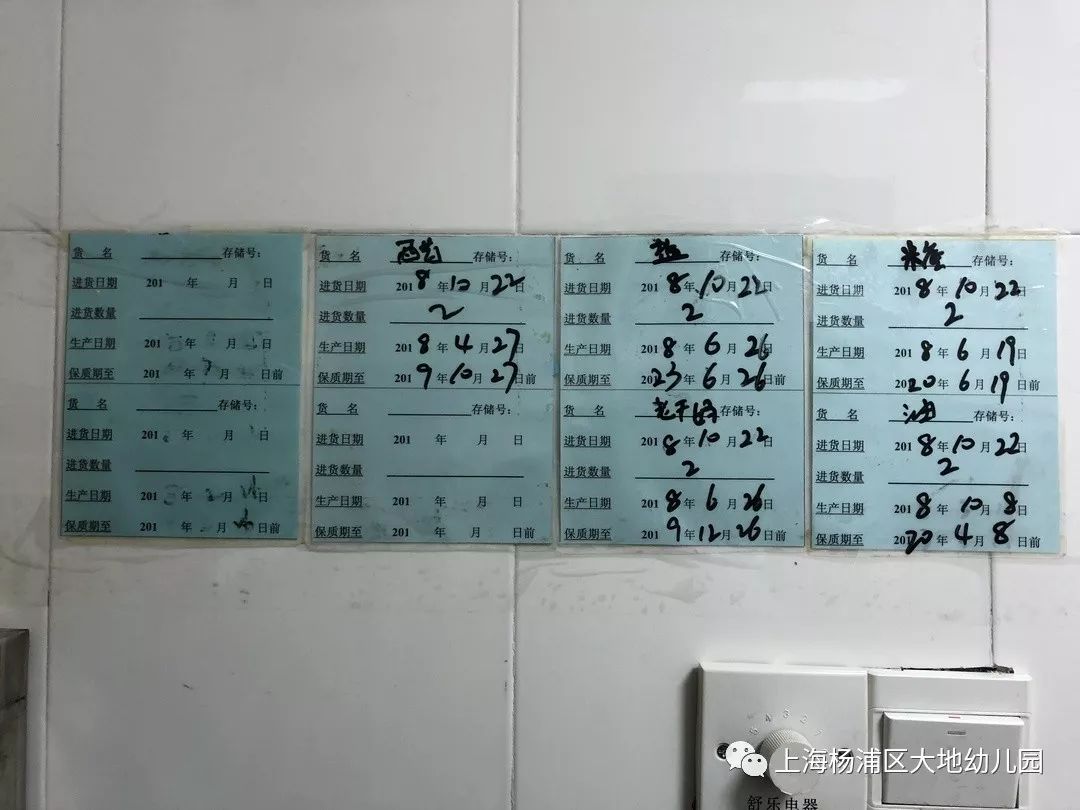 货 名 存储号:
进货日期 201 年 月 日
进货数量
生产日期 201 年 月 日
保质期至 201 年 月 日前
货 名 存储号:
进货日期 201 年 月 日
进货数量
生产日期 201 年 月 日
保质期至 201 年 月 日前
货 名 存储号:
进货日期 2018年10月22日
进货数量 2
生产日期 2018年4月27日
保质期至 2019年10月27日前
货 名 存储号:
进货日期 201 年 月 日
进货数量
生产日期 201 年 月 日
保质期至 201 年 月 日前
货 名 盐 存储号:
进货日期 2018年10月22日
进货数量 2
生产日期 2018年6月26日
保质期至 2023年6月26日前
老干妈 存储号:
进货日期 2018年10月22日
进货数量 2
生产日期 2018年6月26日
保质期至 2019年12月26日前
货 名 米醋 存储号:
进货日期 2018年10月22日
进货数量 2
生产日期 2018年6月19日
保质期至 2020年6月19日前
货 名 油 存储号:
进货日期 2018年10月22日
进货数量 2
生产日期 2018年10月8日
保质期至 2020年4月8日前
上海杨浦区大地幼儿园
舒乐电器